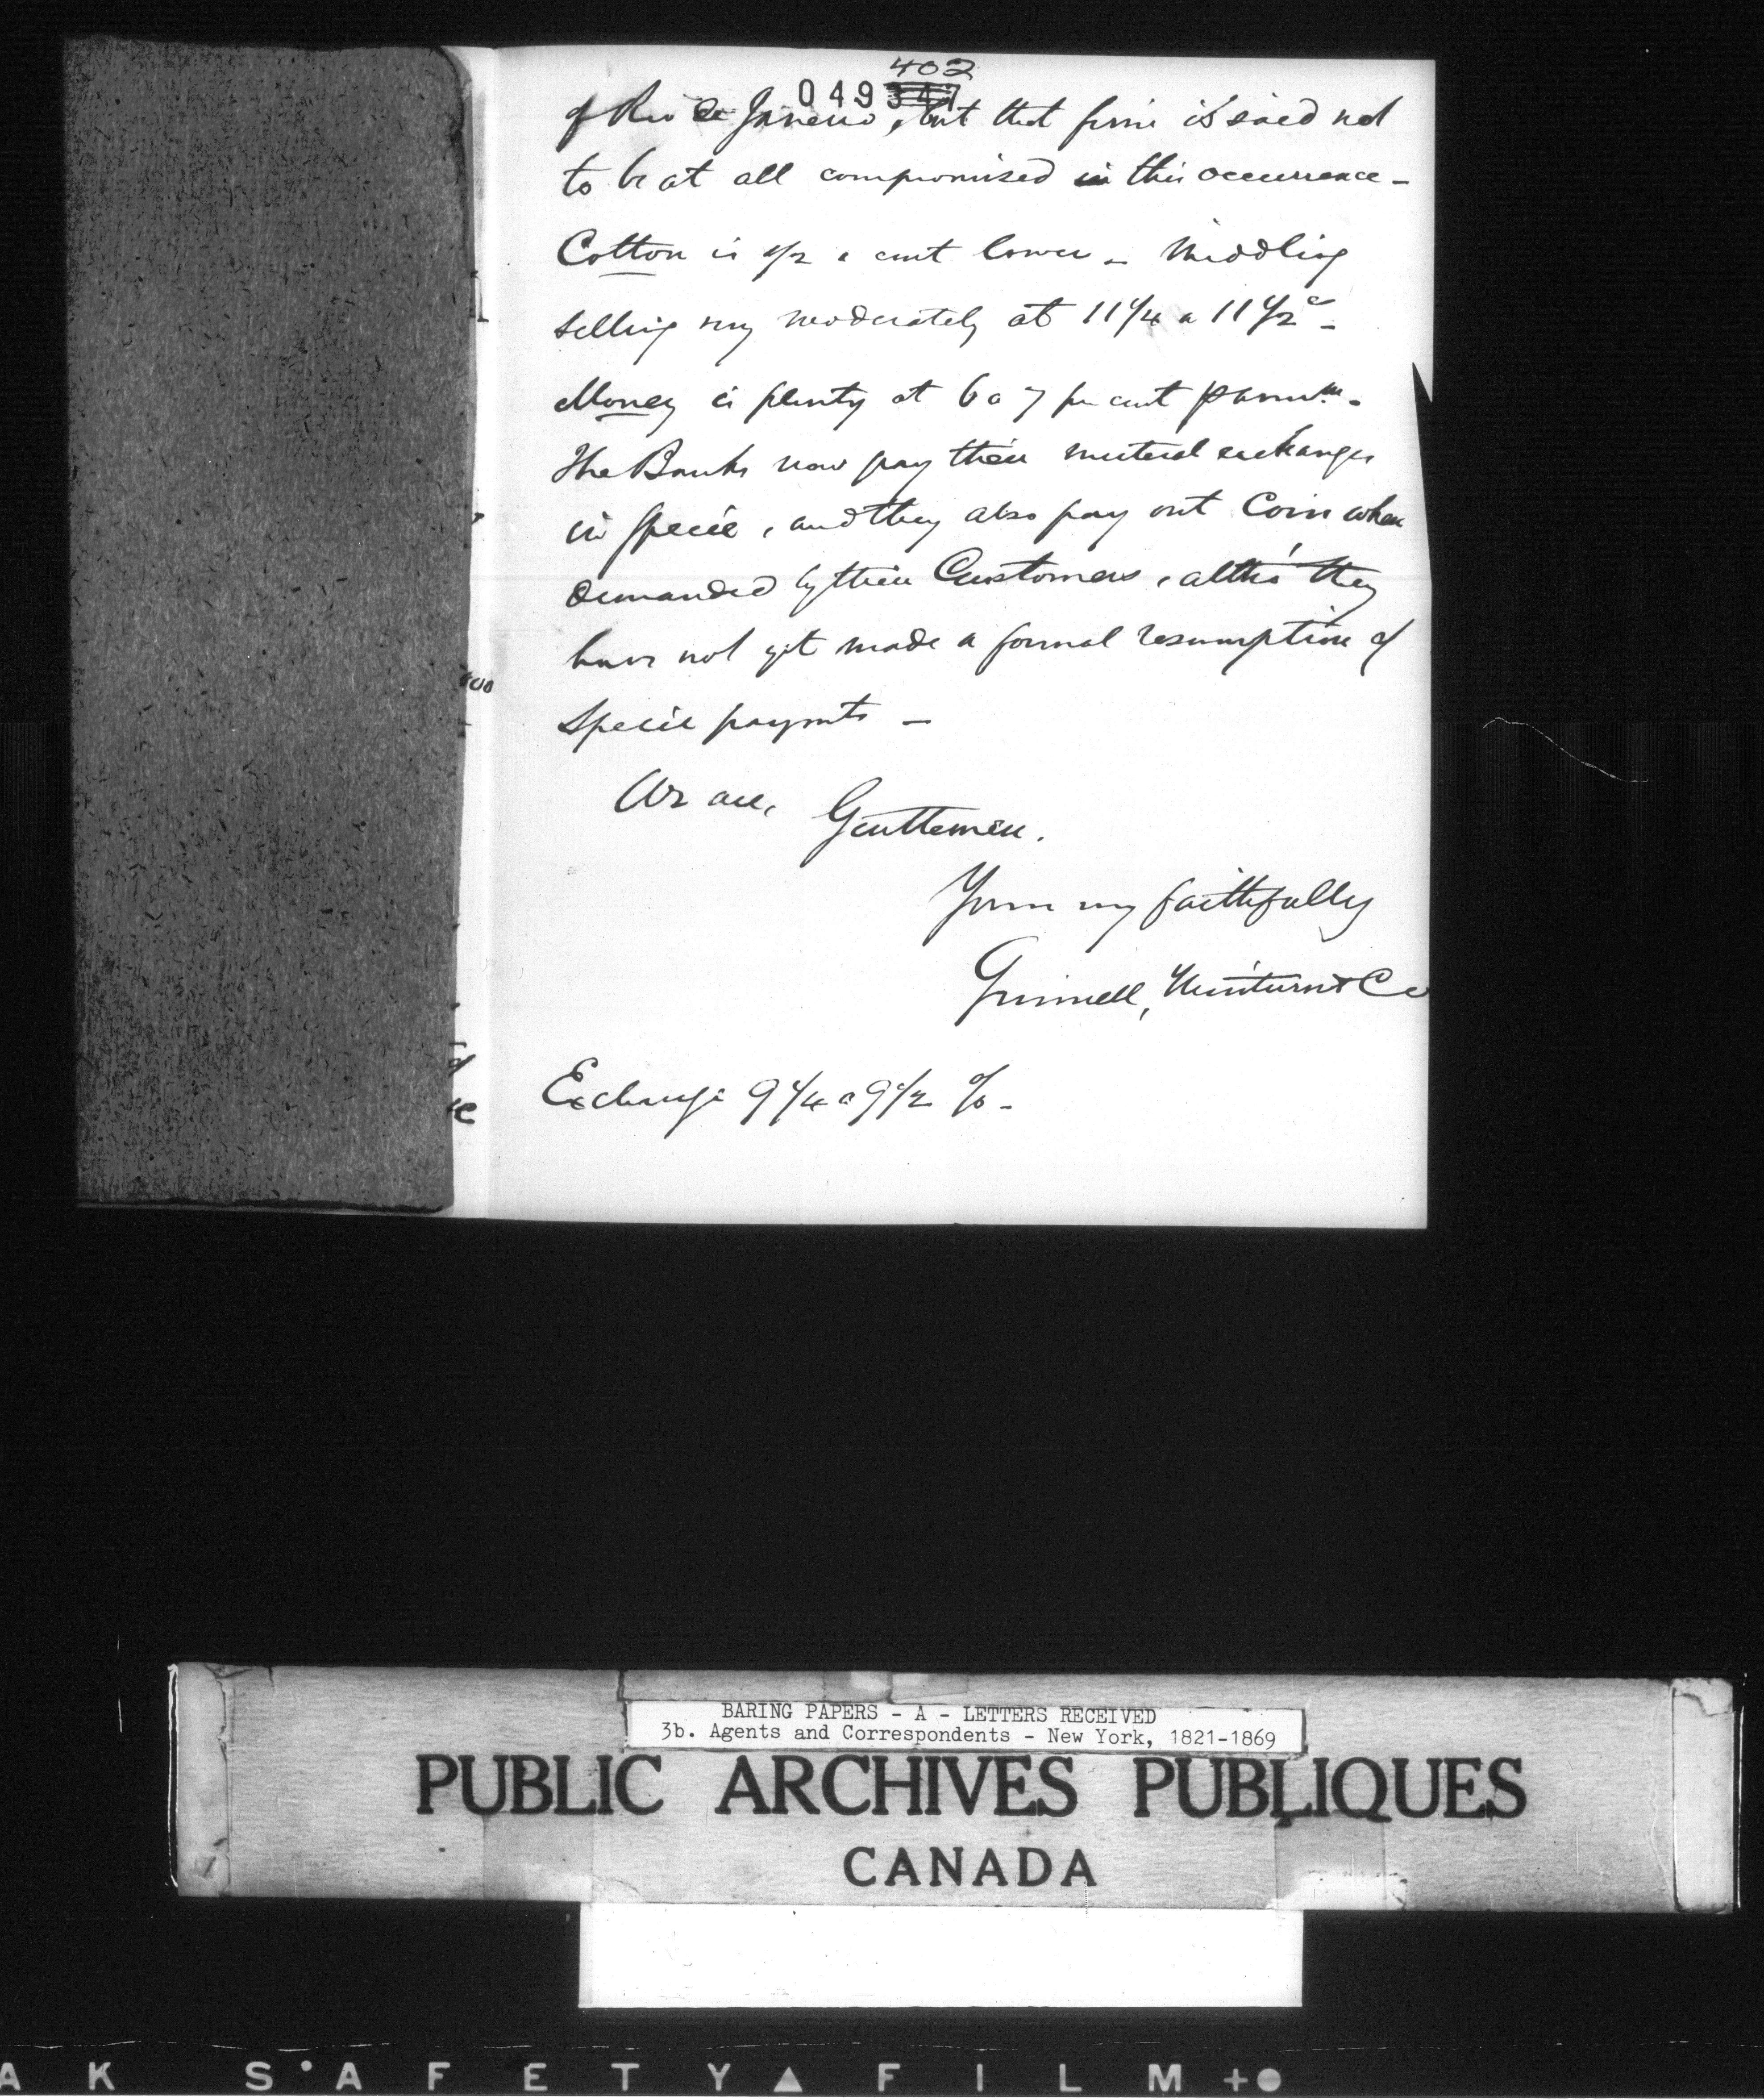 402
049347
of Rio de Janeiro, but that firm is said not
to be at all compromised in this occurrence -
Cotton is 1/2 a cent lower - Middling
selling very moderately at 11 1/4 a 11 1/2 c -
Money is plenty at 6 a 7 per cent p annum. -
The Banks now pay their mutual exchanges
in specie, and they also pay out Coin when
demanded by their Customers, altho' they
have not yet made a formal resumption of
specie paymts -
We are,
Gentlemen.
Yours very faithfully
Grinnell, Minturn & Co
Exchange 9 1/4 a 9 1/2 % -
BARING PAPERS - A - LETTERS RECEIVED
3b. Agents and Correspondents - New York, 1821-1869
PUBLIC ARCHIVES PUBLIQUES
CANADA
AK SAFETY▲FILM+●